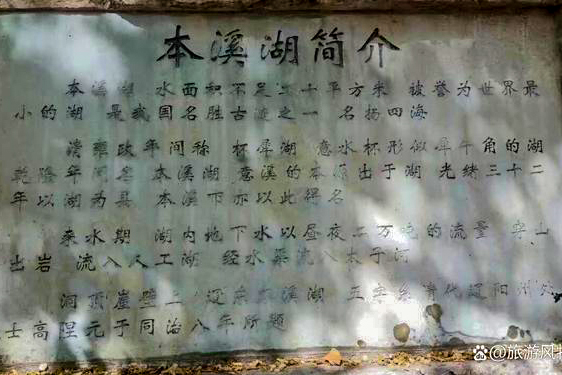 本溪湖简介
本溪湖 水面积不足二十平方米 被誉为世界最
小的湖 是我国名胜古迹之一 名扬四海
清雍政年间称 杯犀湖 意水杯形似犀牛角的湖
乾隆年间定 本溪湖 意溪的本源出于湖 光绪三十二
年以湖为县 本溪下亦以此得名
来水期 湖内地下水以昼夜二万吨的流量 穿山
出岩 流入人工湖 经水渠流入太子河
洞顶崖壁上 辽东本溪湖 五字系清代辽阳州
士高陞元于同治八年所题
@旅游风